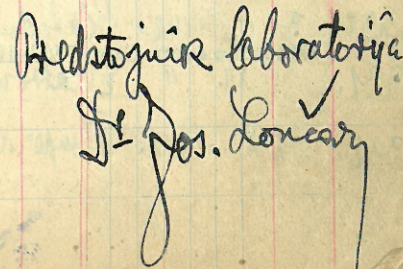 Predstojnik laboratorija
Dr Jos. Lončar